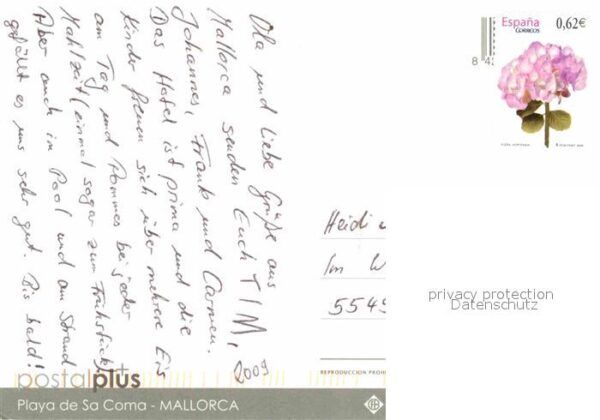 Ola und liebe Grüße aus
Mallorca senden Euch TIM,
Johannes, Frank und Carmen.
Das Hotel ist prima und die
Kinder freuen sich über mehrere Eis
am Tag und Pommes bei jeder
Mahlzeit (einmal sogar zum Frühstück).
Aber auch im Pool und am Strand
gefällt es uns sehr gut. Bis bald!
2009
España
CORREOS
0,62€
84
Heidi
Im W
5549
privacy protection
Datenschutz
REPRODUCCION PROHI
postalplus
Playa de Sa Coma - MALLORCA